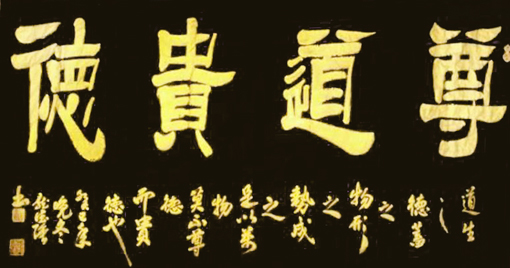 尊道貴德
道生
之
德蓄
之
物形
之
勢成
之
是以萬
物
莫不尊
德
而貴
德也
年
晚冬
書